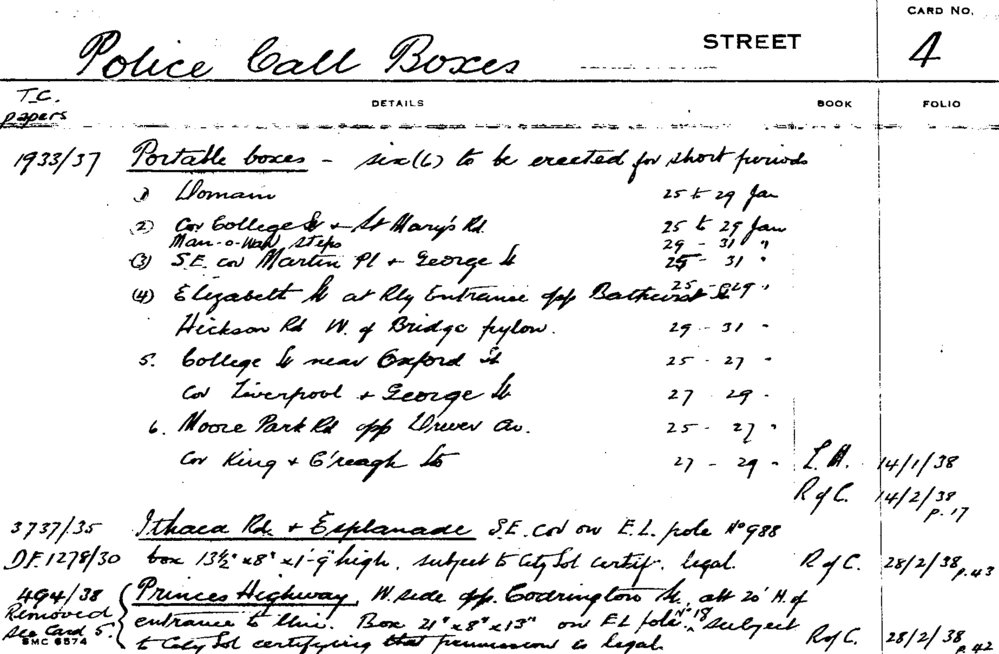 CARD No.
Police Call Boxes STREET 4
T.C. papers DETAILS BOOK FOLIO
1933/37 Portable boxes - six (6) to be erected for short periods
1) Domain 25 to 29 Jan
(2) Cor College St + St Mary's Rd. 25 to 29 Jan
Man-o-War Steps 29 - 31 "
(3) S.E. cor Martin Pl + George St 25 - 31 "
(4) Elizabeth St at Rly Entrance opp Bathurst St 25 - 29 "
Hickson Rd W. of Bridge pylon. 29 - 31 "
5. College St near Oxford St 25 - 27 "
Cor Liverpool + George St 27 - 29 -
6. Moore Park Rd opp Driver Av. 25 - 27 "
Cor King + C'reagh Sts 27 - 29 - L.M. 14/1/38
R of C. 14/2/38 p.17
3737/35 Ithaca Rd. + Esplanade S.E. cor on E.L. pole No 988
D.F. 1278/30 box 13½" x 8" x 1'-9" high, subject to City Sol certify. legal. R of C. 28/2/38 p.43
494/38 Princes Highway, W. side opp. Codrington St, abt 20' N. of
Removed entrance to Uni. Box 21" x 8" x 13" on E L pole No 18, subject
see Card 5. to City Sol certifying that permission is legal. R of C. 28/2/38 p.42
SMC 6574